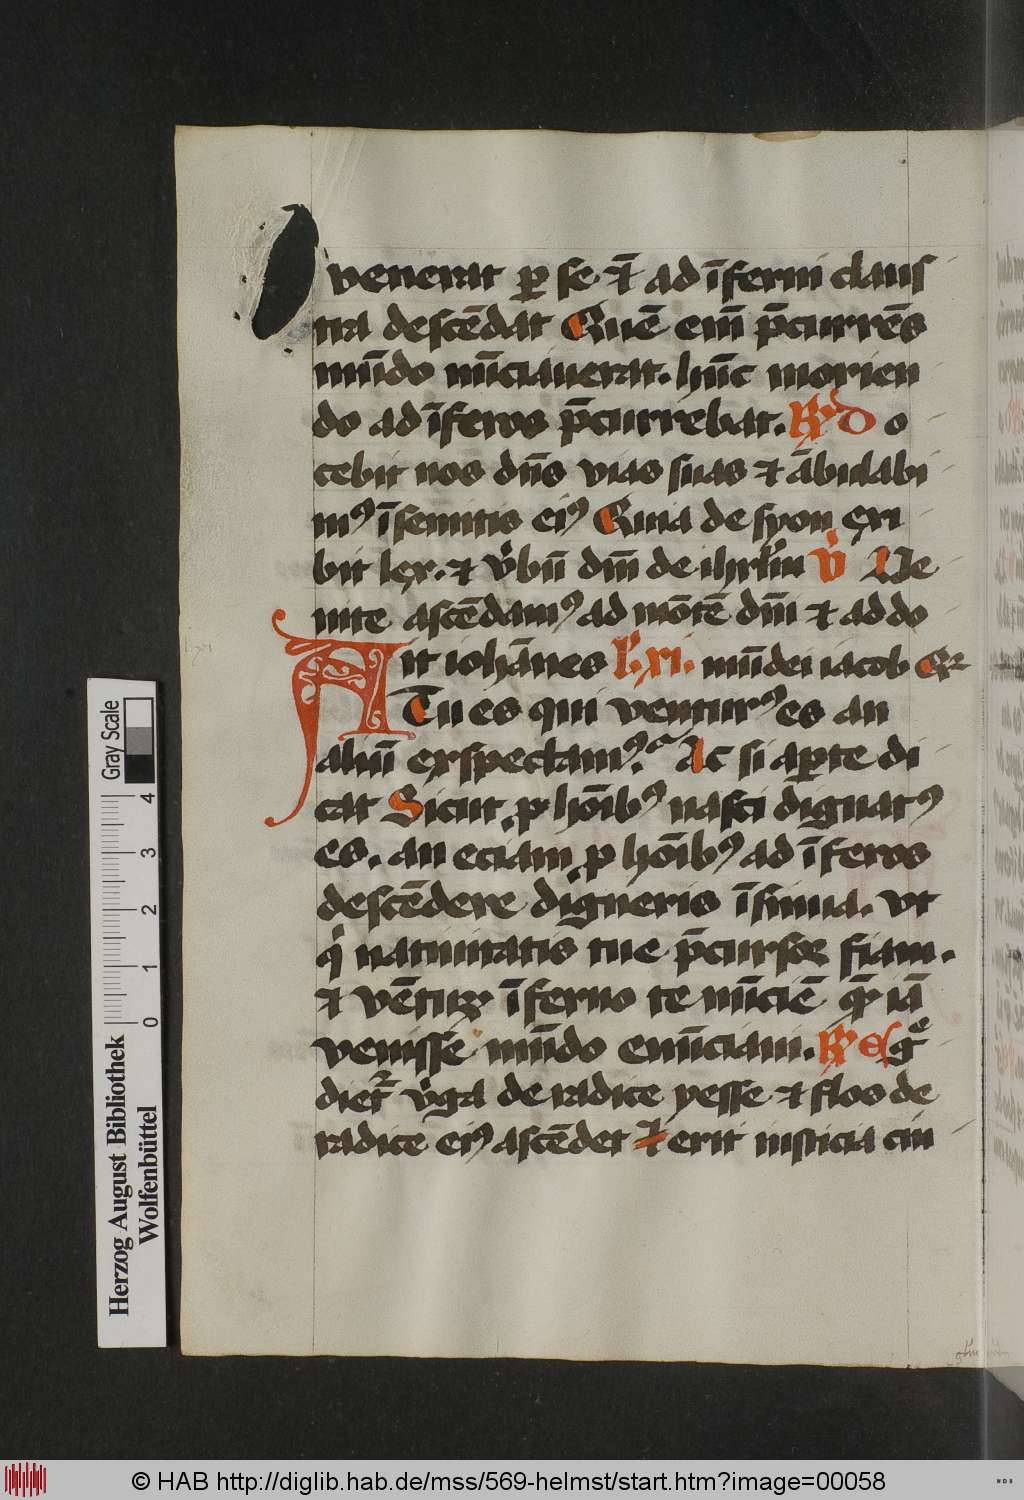 venerat ꝑ se ⁊̄ ad īferni claus
tra descēdat Quē em̄ p̄currēs
mūdo nūciauerat. hūc morien
do ad īferos p̄currebat. R̸ D o
cebit nos dn̄s vias suas ⁊ ābulabi
mꝰ ī semitis eiꝰ Quia de syon exi
bit lex. ⁊ v̍bū dn̄i de ihrl̄m V̍ Ve
nite ascēdamꝰ ad mōtē dn̄i ⁊ ad do
Ait iohānes L̍ xi. mū dei iacob Qr
Tu es qui venturꝰ es an
aliū exspectamꝰ. Ac si aꝑte di
cat Sicut ꝓ hōibꝰ nasci dignatꝰ
es. an eciam ꝓ hōibꝰ ad īferos
descēdere digneris īsinua. vt
q̍ natiuitatis tue p̄cursor fiam.
⁊ vētuꝝ īferno te nūciē qm̄ iā
venisse mūdo enūciaui. R̸ E gͤ
diet᷑ v̍ga de radice yesse ⁊ flos de
radice eiꝰ ascēdet ⁊ erit iusticia cin
Gray Scale
4
3
2
1
0
Herzog August Bibliothek
Wolfenbüttel
© HAB http://diglib.hab.de/mss/569-helmst/start.htm?image=00058